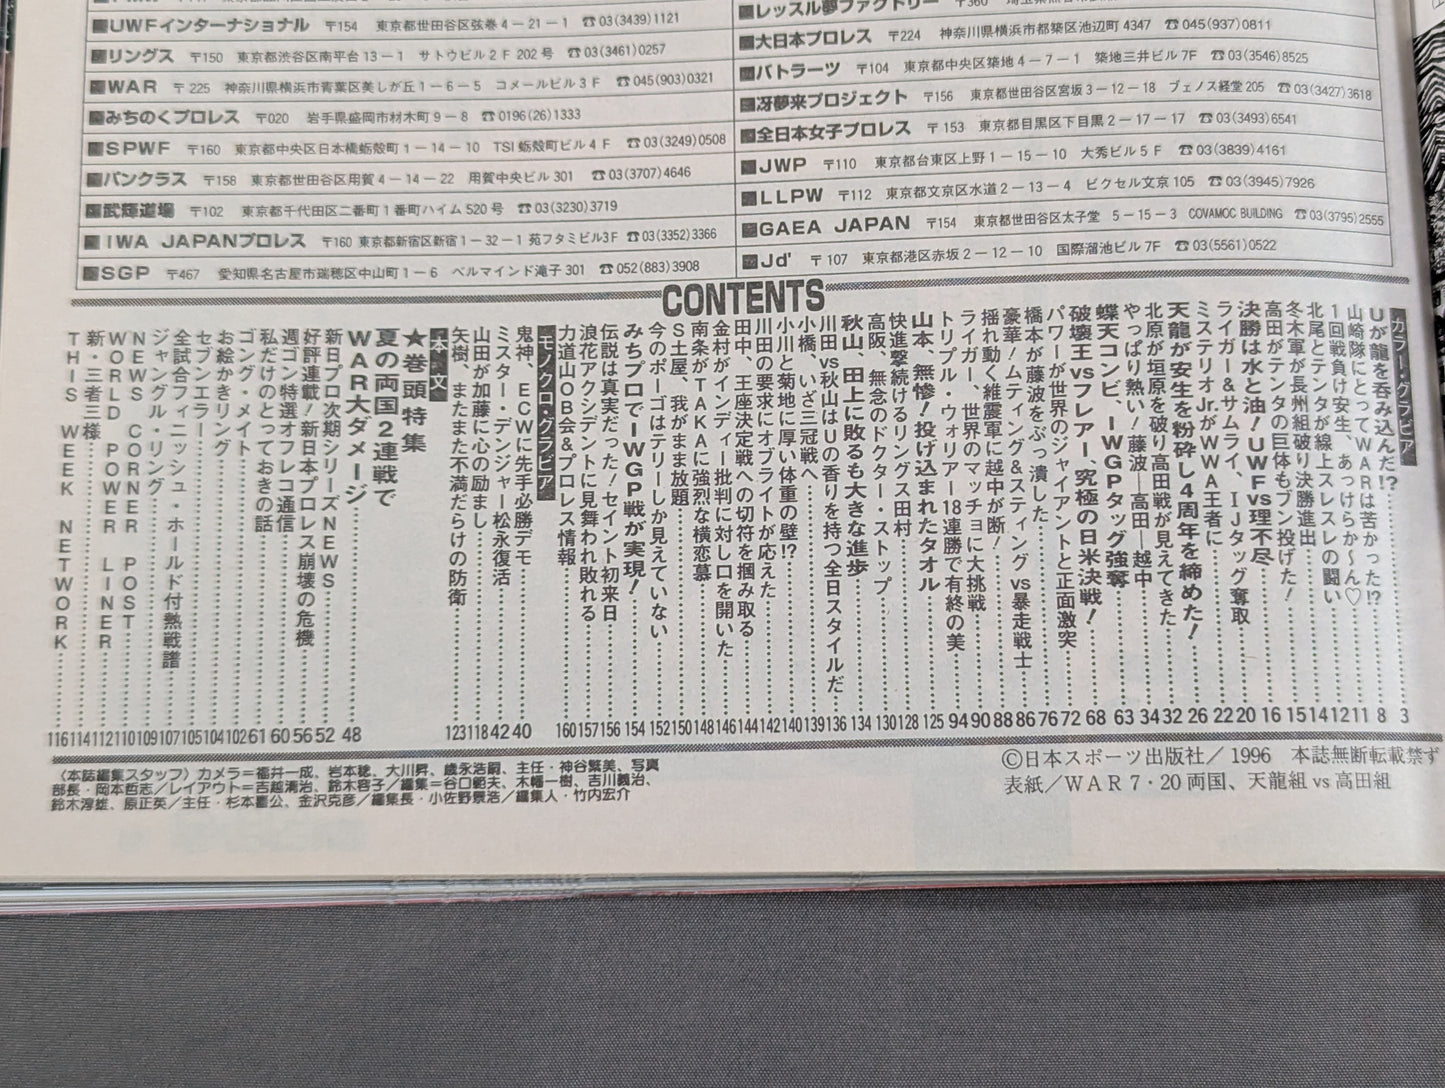 ■UWFインターナショナル 〒154 東京都世田谷区弦巻4－21－1 ☎03(3439)1121
■リングス 〒150 東京都渋谷区南平台13－1 サトウビル2F 202号 ☎03(3461)0257
■WAR 〒225 神奈川県横浜市青葉区美しが丘1－6－5 コメールビル3F ☎045(903)0321
■みちのくプロレス 〒020 岩手県盛岡市材木町9－8 ☎0196(26)1333
■SPWF 〒160 東京都中央区日本橋蛎殻町1－14－10 TSI蛎殻町ビル4F ☎03(3249)0508
■パンクラス 〒158 東京都世田谷区用賀4－14－22 用賀中央ビル301 ☎03(3707)4646
■武輝道場 〒102 東京都千代田区二番町1番町ハイム520号 ☎03(3230)3719
■IWA JAPANプロレス 〒160 東京都新宿区新宿1－32－1 苑フタミビル3F ☎03(3352)3366
■SGP 〒467 愛知県名古屋市瑞穂区中山町1－6 ベルマインド滝子301 ☎052(883)3908
■レッスル夢ファクトリー 〒360
■大日本プロレス 〒224 神奈川県横浜市都築区池辺町4347 ☎045(937)0811
■バトラーツ 〒104 東京都中央区築地4－7－1 築地三井ビル7F ☎03(3546)8525
■冴夢来プロジェクト 〒156 東京都世田谷区宮坂3－12－18 ブェノス経堂205 ☎03(3427)3618
■全日本女子プロレス 〒153 東京都目黒区下目黒2－17－17 ☎03(3493)6541
■JWP 〒110 東京都台東区上野1－15－10 大秀ビル5F ☎03(3839)4161
■LLPW 〒112 東京都文京区水道2－13－4 ビクセル文京105 ☎03(3945)7926
■GAEA JAPAN 〒154 東京都世田谷区太子堂 5－15－3 COVAMOC BUILDING ☎03(3795)2555
■Jd' 〒107 東京都港区赤坂2－12－10 国際溜池ビル7F ☎03(5561)0522
CONTENTS
カラー・グラビア
Uが龍を呑み込んだ!?……3
山崎隊にとってWARは苦かった!?……8
1回戦負け安生、あっけらか〜ん♡……11
北尾とテンタが線上スレスレの闘い……12
冬木軍が長州組破り決勝進出……14
高田がテンタの巨体もブン投げた!……15
決勝は水と油!UWFvs理不尽……16
ライガー&サムライ、IJタッグ奪取……20
ミステリオJr.がWWA王者に……22
天龍が安生を粉砕し4周年を締めた!……26
北原が垣原を破り高田戦が見えてきた……32
やっぱり熱い!藤波―高田―越中……34
蝶天コンビ、IWGPタッグ強奪……63
破壊王vsフレアー、究極の日米決戦!……68
パワーが世界のジャイアントと正面激突……72
橋本が藤波をぶっ潰した……76
豪華!ムティング&スティングvs暴走戦士……86
揺れ動く維震軍に越中が断!……88
ライガー、世界のマッチョに大挑戦……90
トリプル・ウォリアー18連勝で有終の美……94
山本、無惨!投げ込まれたタオル……125
快進撃続けるリングス田村……128
高阪、無念のドクター・ストップ……130
秋山、田上に敗るも大きな進歩……134
川田vs秋山はUの香りを持つ全日スタイルだ……136
小橋、いざ三冠戦へ……139
小川と菊地に厚い体重の壁!?……140
川田の要求にオブライトが応えた……142
田中、王座決定戦への切符を掴み取る……144
金村がインディー批判に対し口を開いた……146
南条がTAKAに強烈な横恋慕……148
S土屋、我がまま放題……150
今のボーゴはテリーしか見えていない……152
みちプロでIWGP戦が実現!……154
伝説は真実だった!セイント初来日……156
浪花アクシデントに見舞われ敗れる……157
力道山OB会&プロレス情報……160
モノクロ・グラビア
鬼神、ECWに先手必勝デモ……40
ミスター・デンジャー松永復活……42
山田が加藤に心の励まし……118
矢樹、またまた不満だらけの防衛……123
本誌文
★巻頭特集
夏の両国2連戦で
WAR大ダメージ……48
新日プロ次期シリーズNEWS……52
好評連載!新日本プロレス崩壊の危機……56
週ゴン特選オフレコ通信……60
私だけのとっておきの話……61
ゴング・メイト……102
お絵かきリング……104
セブンエラー……105
全試合フィニッシュ・ホールド付熱戦譜……107
ジャングル・リング……109
NEWS CORNER POST……110
WORLD POWER LINER……112
新・三者三様……114
THIS WEEK NETWORK……116
〈本誌編集スタッフ〉カメラ＝福井一成、岩本稔、大川昇、歳永浩嗣、主任・神谷繁美、写真
部長・岡本哲志／レイアウト＝吉越満治、鈴木容子／編集＝谷口範夫、木幡一樹、吉川義治、
鈴木淳雄、原正英／主任・杉本喜公、金沢克彦／編集長・小佐野景浩／編集人・竹内宏介
©日本スポーツ出版社／1996 本誌無断転載禁ず
表紙／WAR7・20両国、天龍組vs高田組